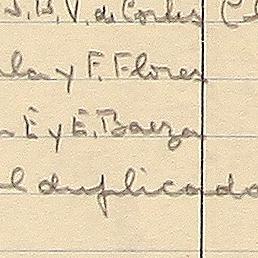 J. B. V. de Cortes
y F. Flores
E y E. Baeza
duplicado